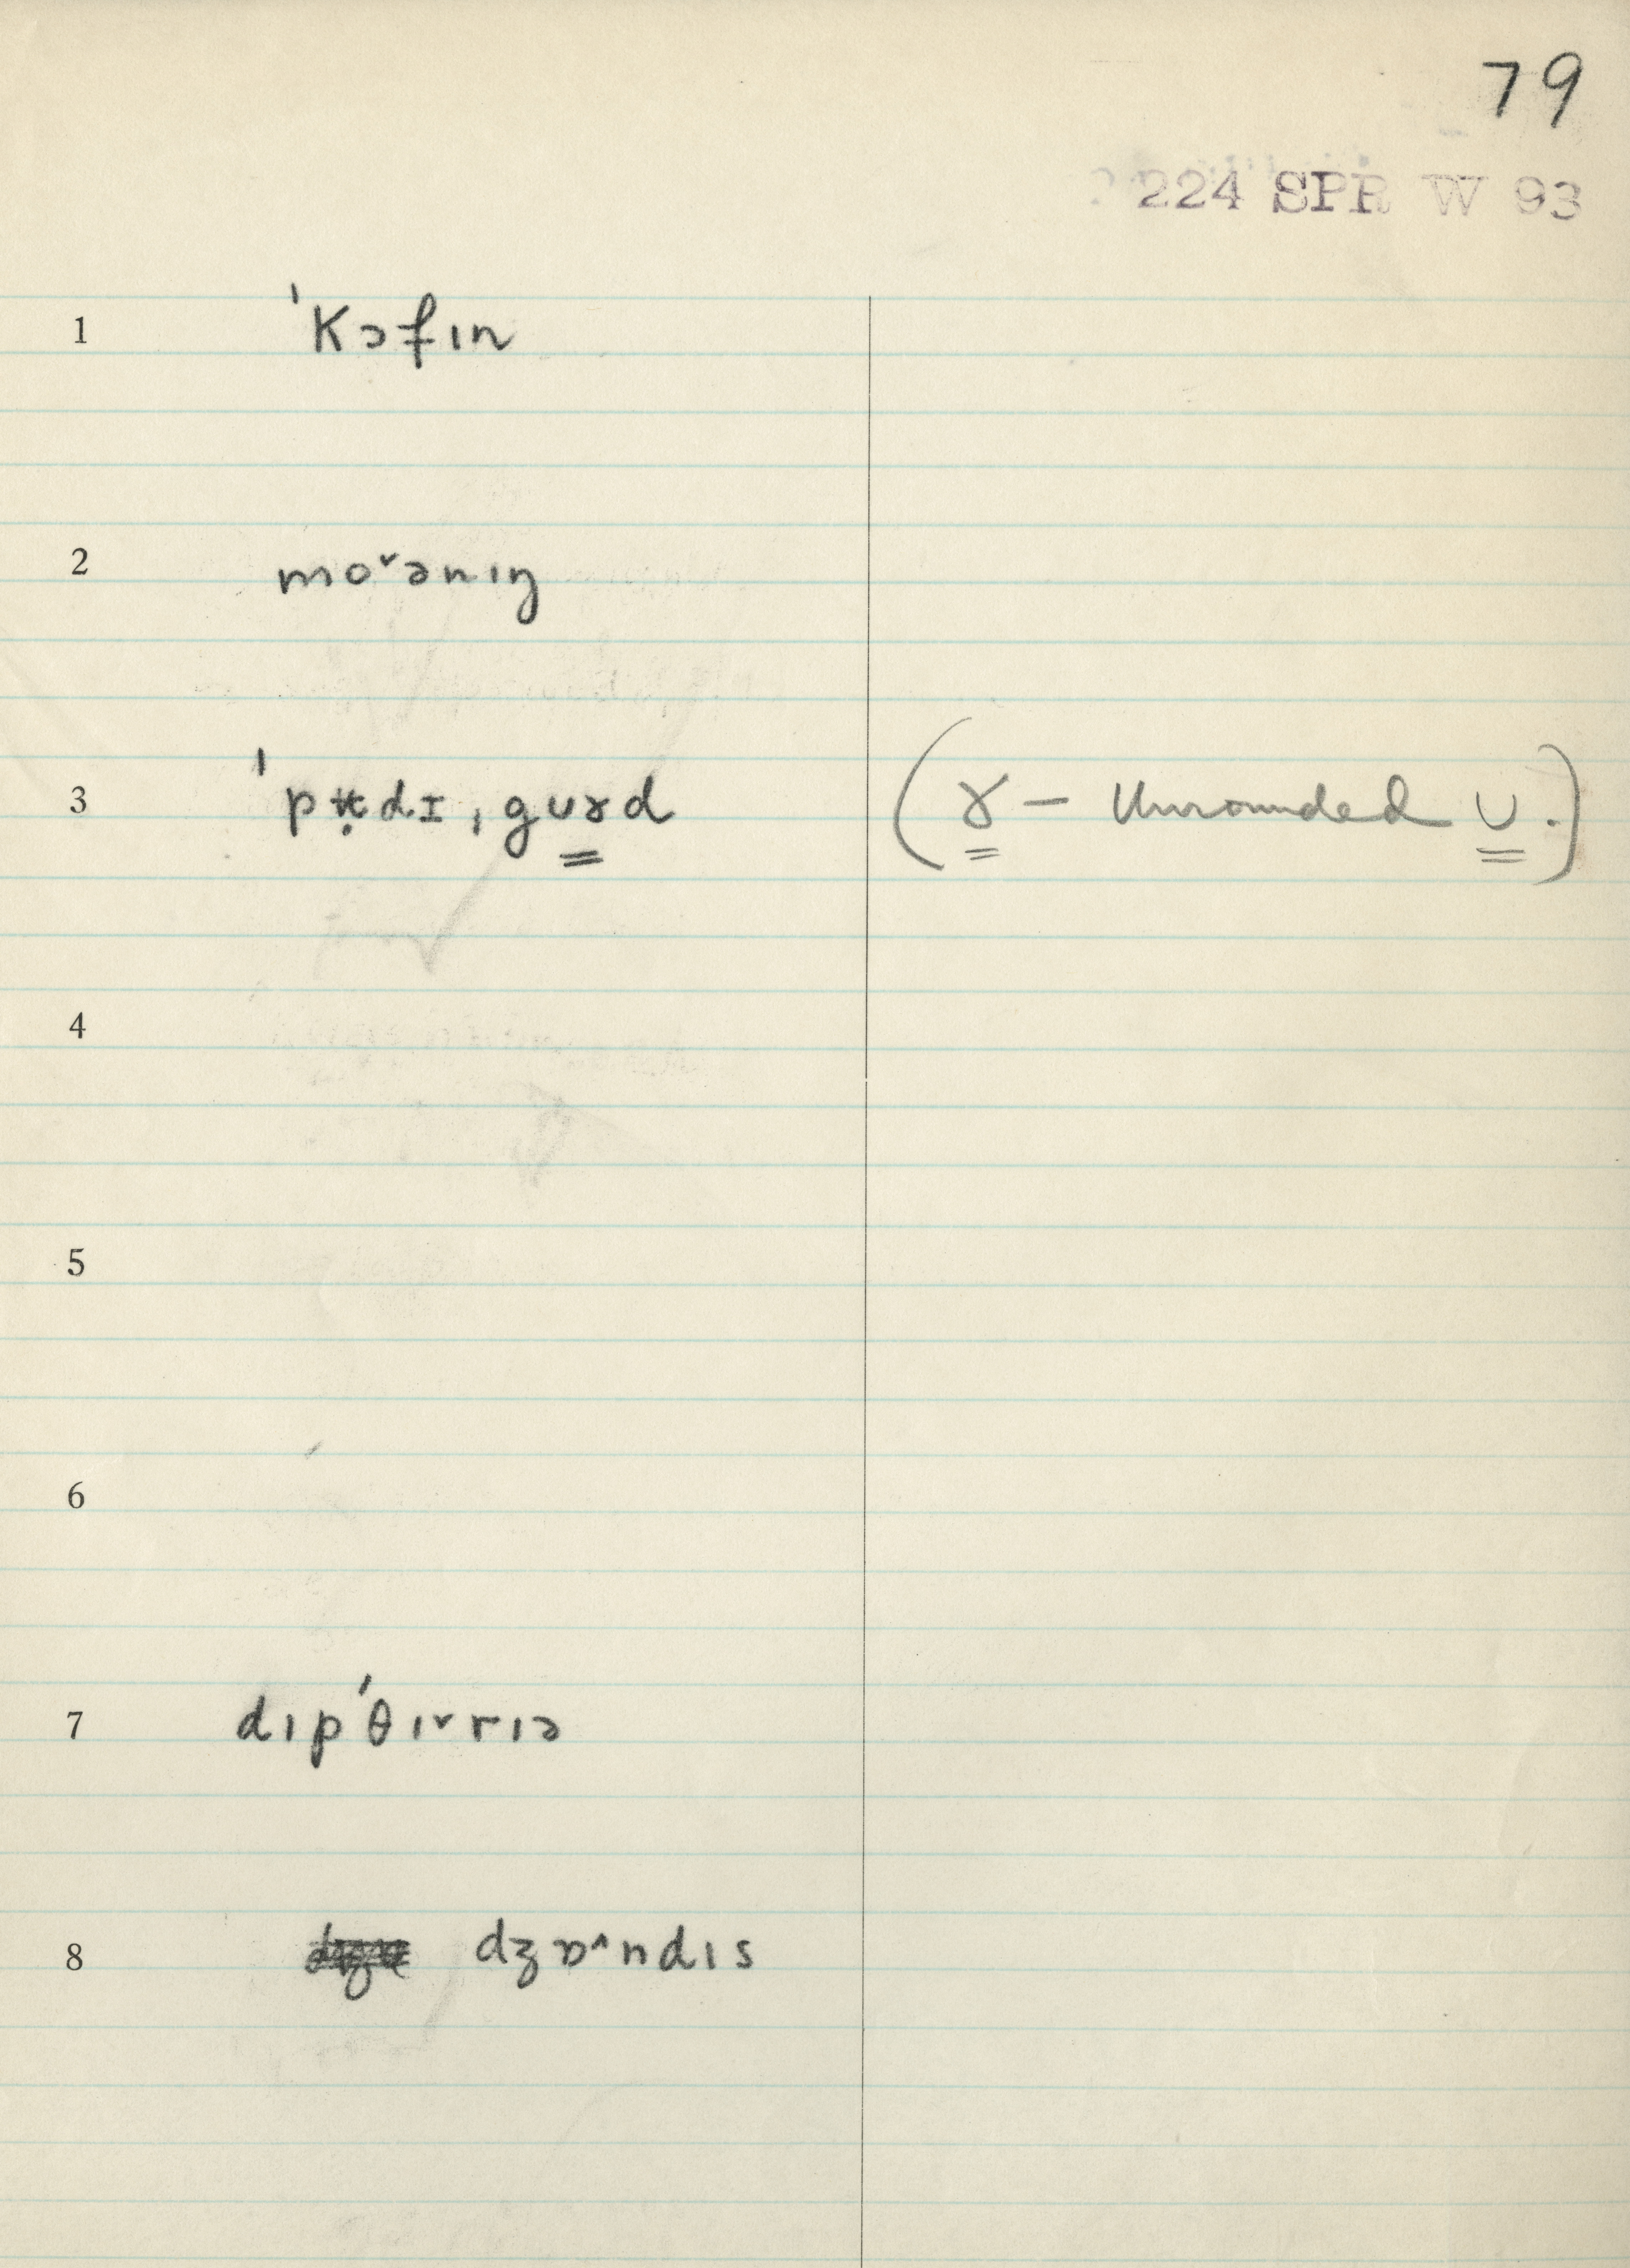 79
224 SPR W 93
1 ˈkɔfɪn
2 moˇənɪŋ
3 ˈpʊ̣dɪ, gʊɤd (ɤ — Unrounded ʊ.)
4
5
6
7 dɪpˈθɪˇrɪɔ
8 dʒɒ^ndɪs